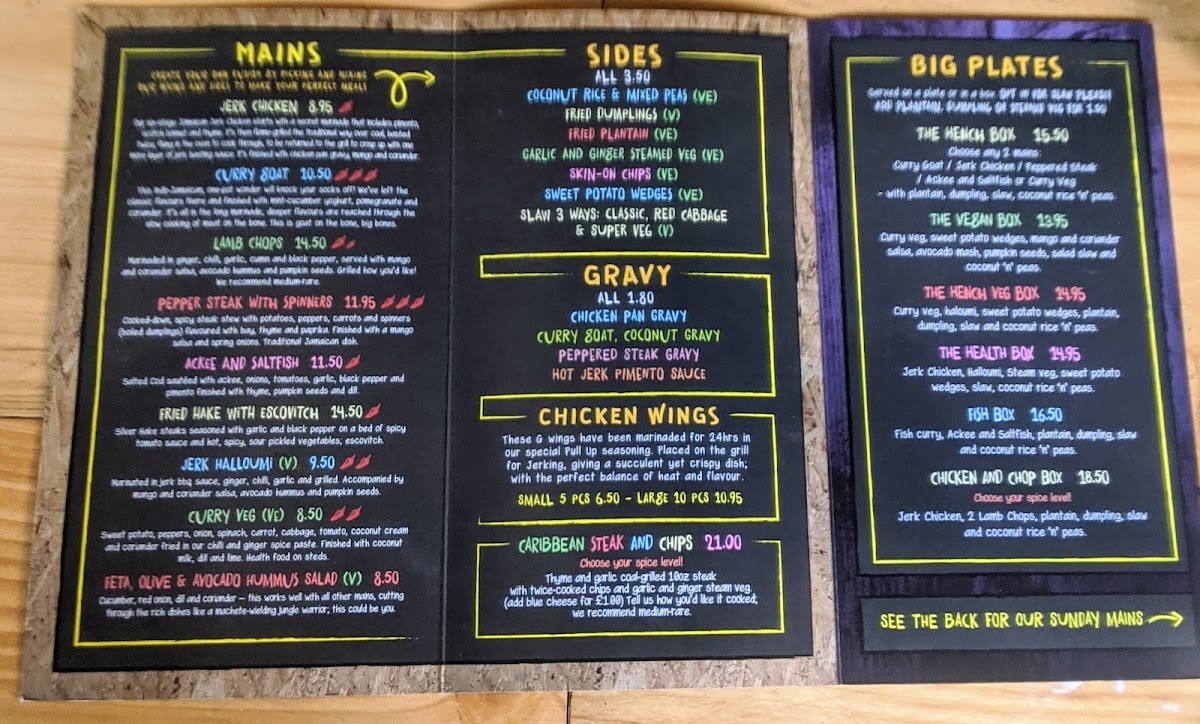 MAINS
CREATE YOUR OWN FUSION BY PICKING AND MIXING
OUR MAINS AND SIDES TO MAKE YOUR PERFECT MEAL!
JERK CHICKEN 8.95
Our six-stage Jamaican Jerk Chicken starts with a secret marinade that includes pimento,
scotch bonnet and thyme. It's then flame-grilled the traditional way over coal, basted
twice, flung in the oven to cook through, to be returned to the grill to crisp up with one
more layer of jerk basting sauce. It's finished with chicken pan gravy, mango and coriander.
CURRY GOAT 10.50
This Indo-Jamaican, one-pot wonder will knock your socks off! We've left the
classic flavours there and finished with mint-cucumber yoghurt, pomegranate and
coriander. It's all in the long marinade, deeper flavours are reached through the
slow cooking of meat on the bone. This is goat on the bone, big bones.
LAMB CHOPS 14.50
Marinated in ginger, chilli, garlic, cumin and black pepper, served with mango
and coriander salsa, avocado hummus and pumpkin seeds. Grilled how you'd like!
We recommend medium-rare.
PEPPER STEAK WITH SPINNERS 11.95
Cooked-down, spicy steak stew with potatoes, peppers, carrots and spinners
(boiled dumplings) flavoured with bay, thyme and paprika. Finished with a mango
salsa and spring onions. Traditional Jamaican dish.
ACKEE AND SALTFISH 11.50
Salted Cod sautéed with ackee, onions, tomatoes, garlic, black pepper and
pimento finished with thyme, pumpkin seeds and dill.
FRIED HAKE WITH ESCOVITCH 14.50
Silver Hake steaks seasoned with garlic and black pepper on a bed of spicy
tomato sauce and hot, spicy, sour pickled vegetables; escovitch.
JERK HALLOUMI (V) 9.50
Marinated in jerk bbq sauce, ginger, chilli, garlic and grilled. Accompanied by
mango and coriander salsa, avocado hummus and pumpkin seeds.
CURRY VEG (VE) 8.50
Sweet potato, peppers, onion, spinach, carrot, cabbage, tomato, coconut cream
and coriander fried in our chilli and ginger spice paste. Finished with coconut
milk, dill and lime. Health food on steds.
FETA, OLIVE & AVOCADO HUMMUS SALAD (V) 8.50
Cucumber, red onion, dill and coriander – this works well with all other mains, cutting
through the rich dishes like a machete-wielding jungle warrior; this could be you.
SIDES
ALL 3.50
COCONUT RICE & MIXED PEAS (VE)
FRIED DUMPLINGS (V)
FRIED PLANTAIN (VE)
GARLIC AND GINGER STEAMED VEG (VE)
SKIN-ON CHIPS (VE)
SWEET POTATO WEDGES (VE)
SLAW 3 WAYS: CLASSIC, RED CABBAGE
& SUPER VEG (V)
GRAVY
ALL 1.80
CHICKEN PAN GRAVY
CURRY GOAT, COCONUT GRAVY
PEPPERED STEAK GRAVY
HOT JERK PIMENTO SAUCE
CHICKEN WINGS
These G wings have been marinaded for 24hrs in
our special Pull Up seasoning. Placed on the grill
for Jerking, giving a succulent yet crispy dish;
with the perfect balance of heat and flavour.
SMALL 5 PCS 6.50 – LARGE 10 PCS 10.95
CARIBBEAN STEAK AND CHIPS 21.00
Choose your spice level!
Thyme and garlic coal-grilled 10oz steak
with twice-cooked chips and garlic and ginger steam veg.
(add blue cheese for £1.00) Tell us how you'd like it cooked;
we recommend medium-rare.
BIG PLATES
Served on a plate or in a box. OPT IN FOR SLAW PLEASE!
ADD PLANTAIN, DUMPLING OR STEAMED VEG FOR 1.50
THE HENCH BOX 15.50
Choose any 2 mains:
Curry Goat / Jerk Chicken / Peppered Steak
/ Ackee and Saltfish or Curry Veg
- with plantain, dumpling, slaw, coconut rice 'n' peas
THE VEGAN BOX 13.95
Curry veg, sweet potato wedges, mango and coriander
salsa, avocado mash, pumpkin seeds, salad slaw and
coconut 'n' peas.
THE HENCH VEG BOX 14.95
Curry veg, haloumi, sweet potato wedges, plantain,
dumpling, slaw and coconut rice 'n' peas.
THE HEALTH BOX 14.95
Jerk Chicken, Halloumi, Steam veg, sweet potato
wedges, slaw, coconut rice 'n' peas.
FISH BOX 16.50
Fish curry, Ackee and Saltfish, plantain, dumpling, slaw
and coconut rice 'n' peas.
CHICKEN AND CHOP BOX 18.50
Choose your spice level!
Jerk Chicken, 2 Lamb Chops, plantain, dumpling, slaw
and coconut rice 'n' peas.
SEE THE BACK FOR OUR SUNDAY MAINS